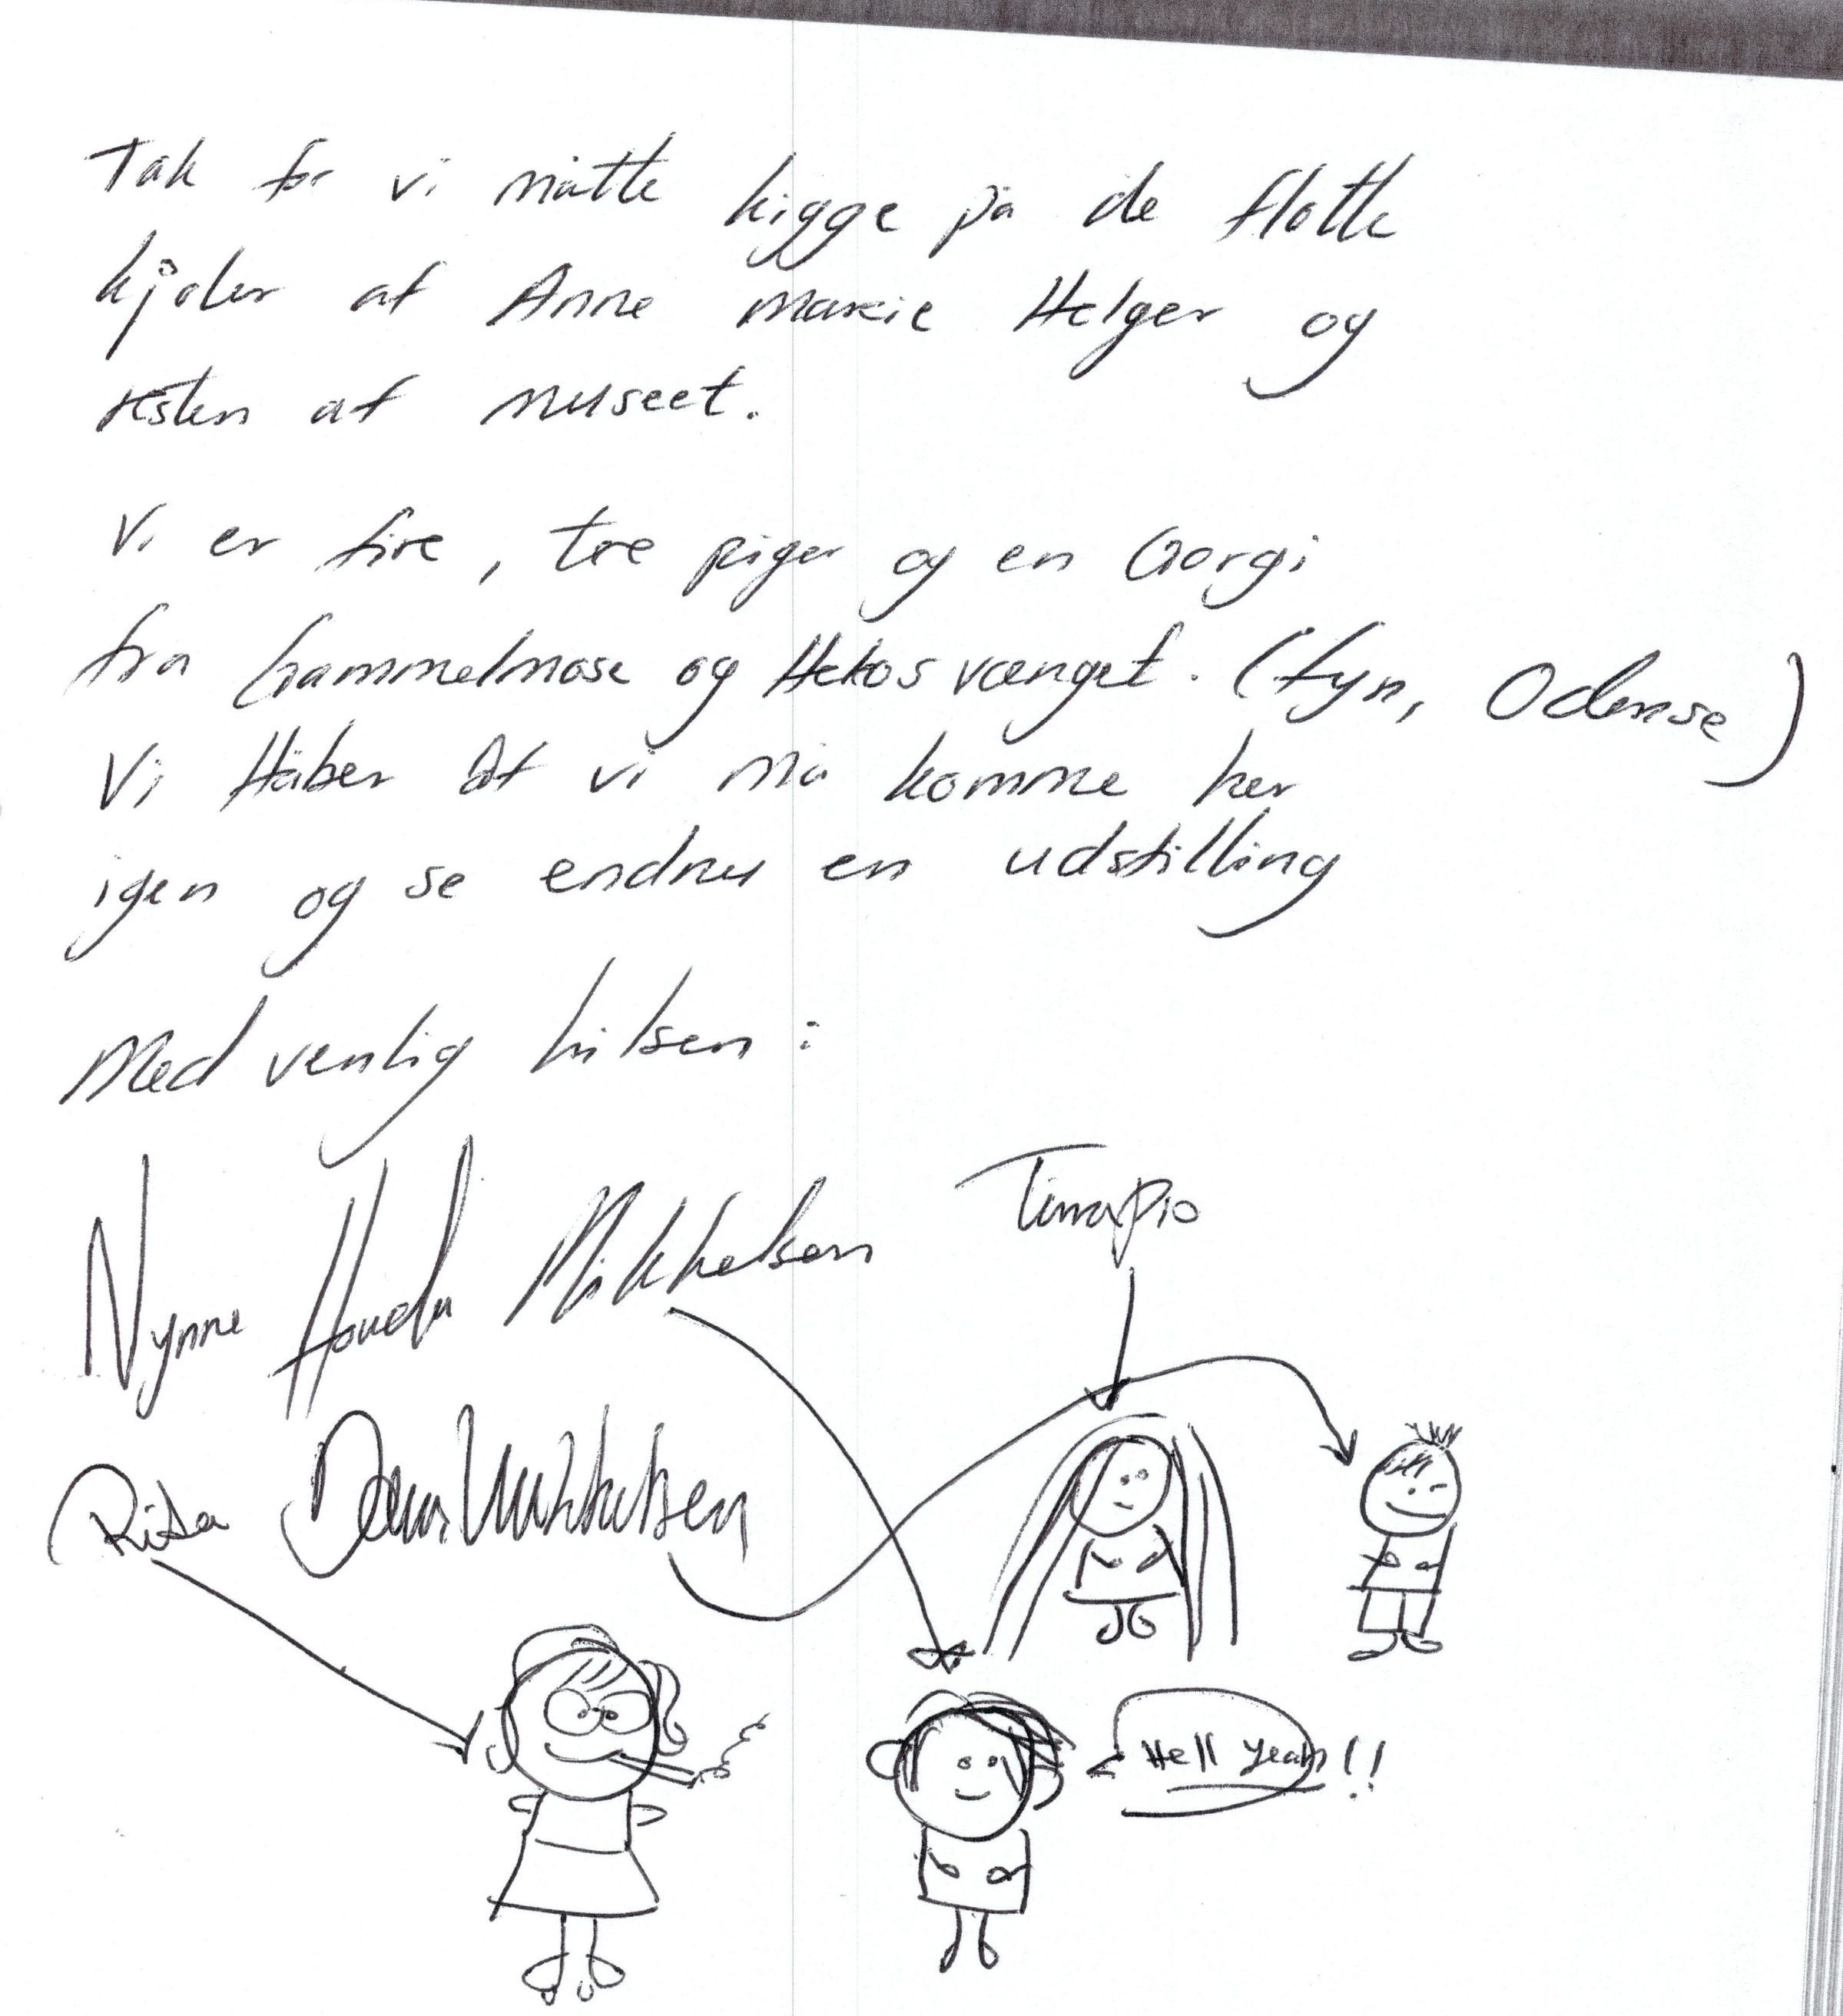 Tak for vi måtte kigge på de flotte
kjoler af Anne Marie Helger og
resten af museet.
Vi er fire, tre piger og en Gorgi
fra Gammelmose og Hekosvænget. (Fyn, Odense)
Vi Håber At vi må komme her
igen og se endnu en udstilling
Med venlig hilsen:
Nynne Mikkelsen
Rita Mikkelsen
Hell yeah!!